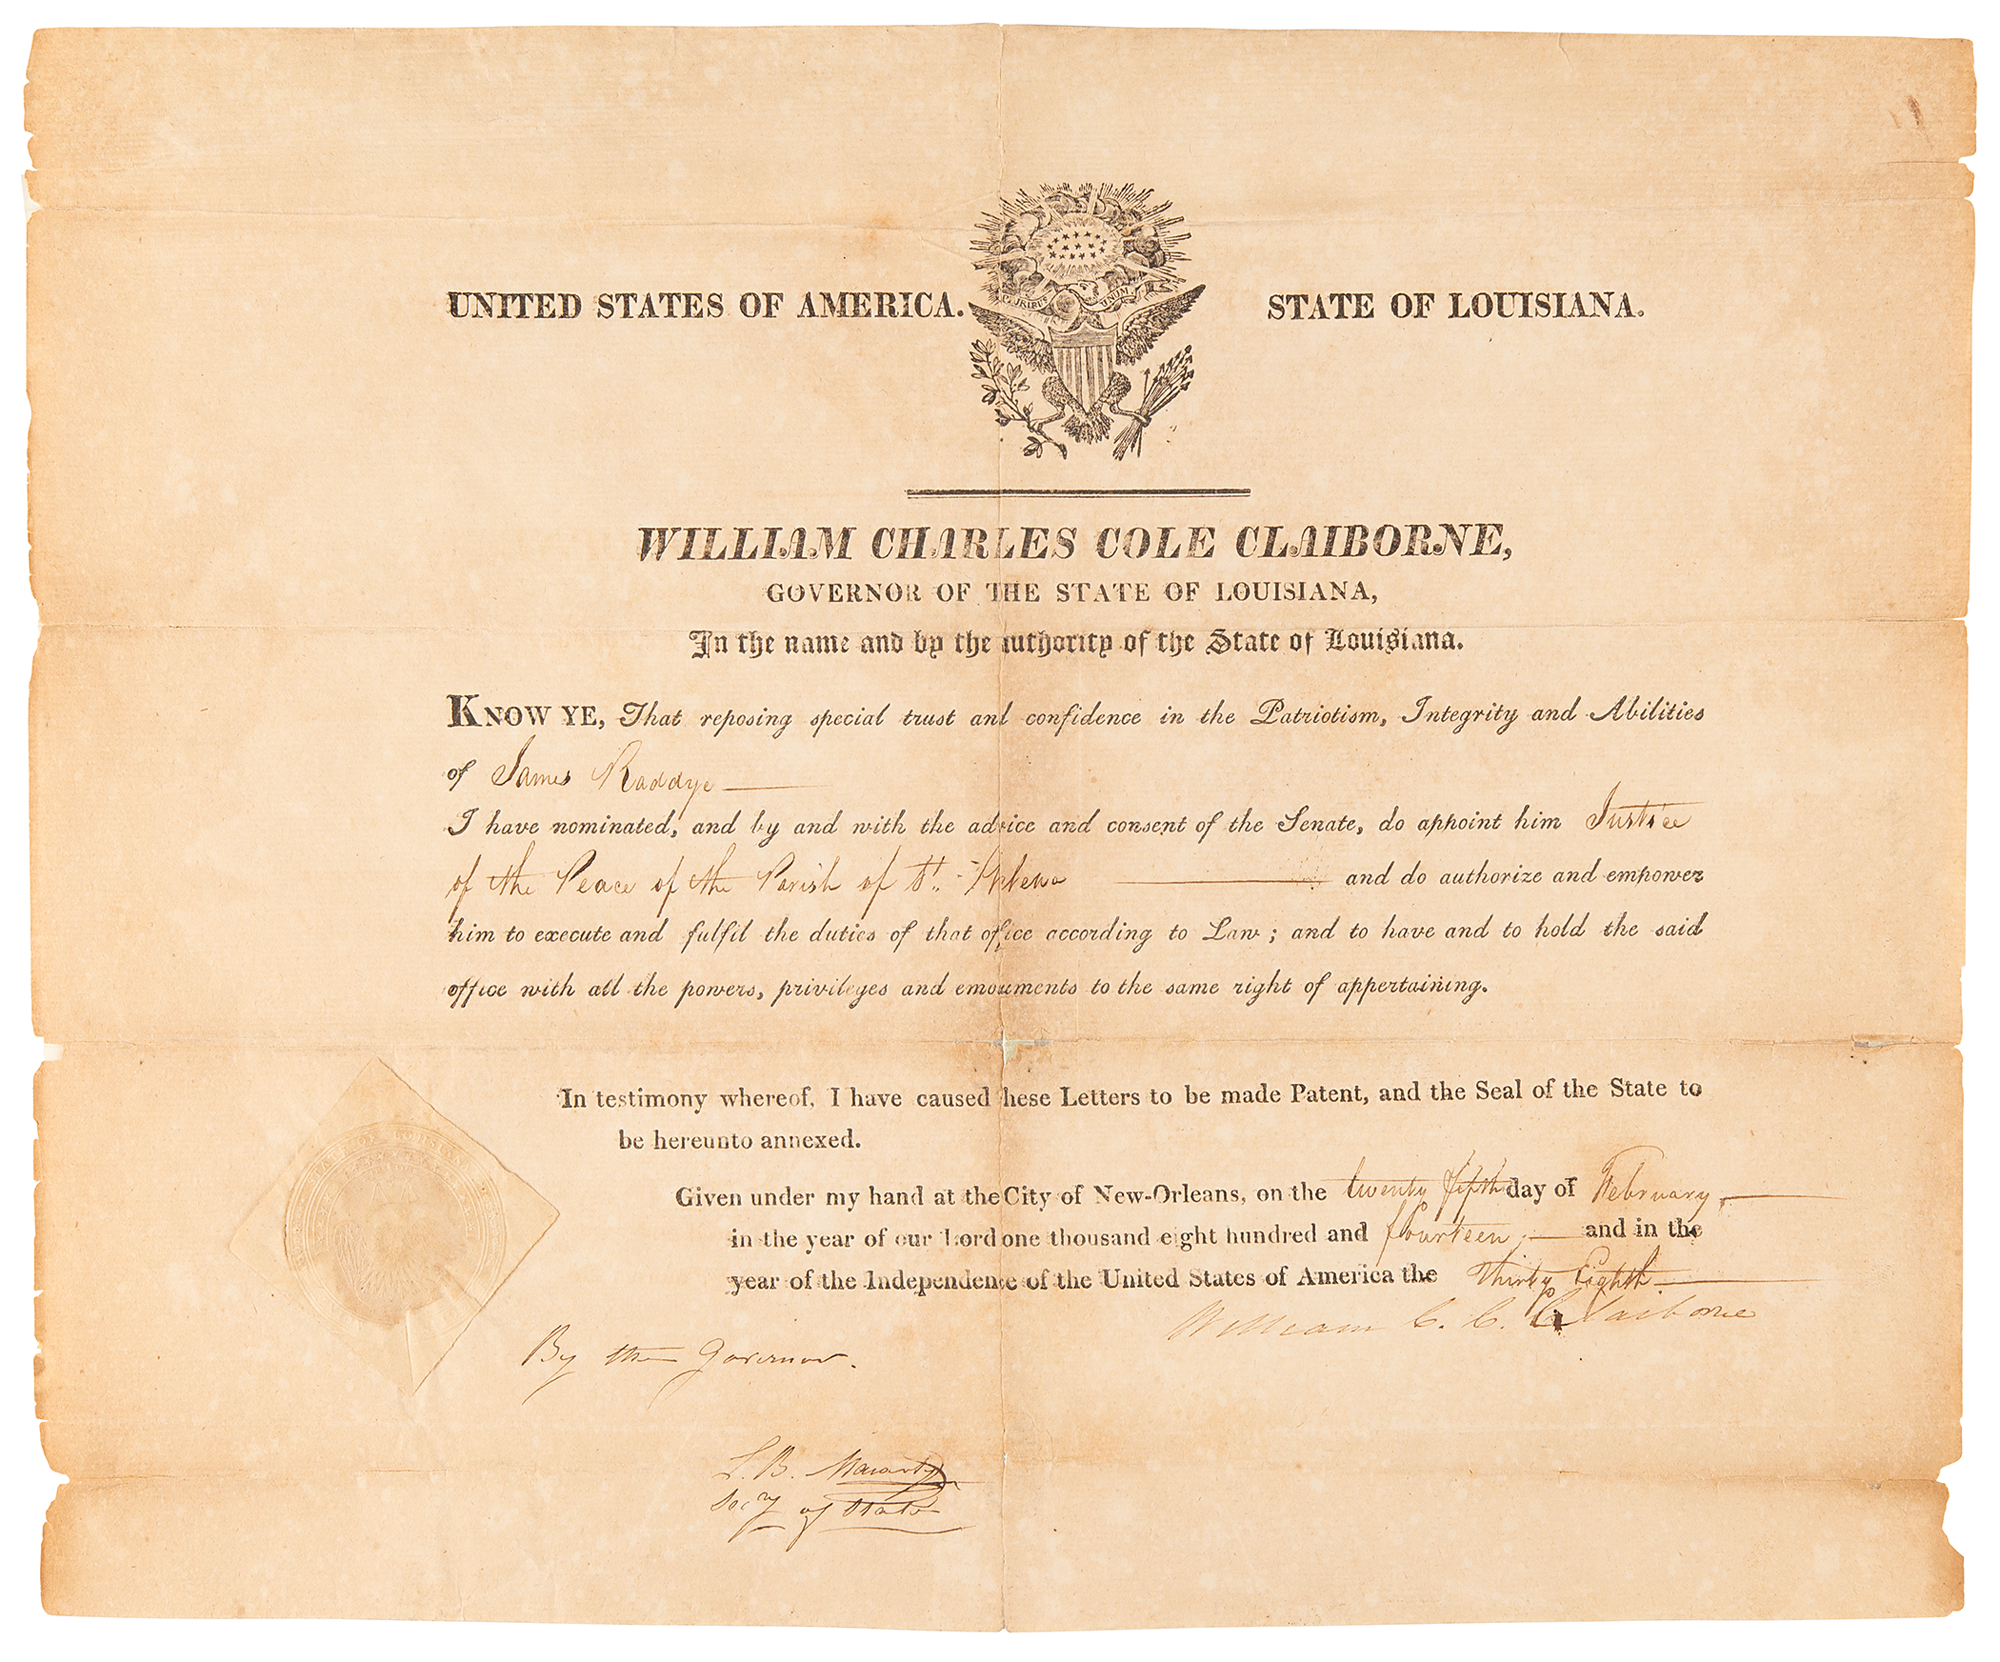 UNITED STATES OF AMERICA. STATE OF LOUISIANA.
UNUM
WILLIAM CHARLES COLE CLAIBORNE,
GOVERNOR OF THE STATE OF LOUISIANA,
In the name and by the authority of the State of Louisiana.
KNOW YE, That reposing special trust and confidence in the Patriotism, Integrity and Abilities
of James Raddye
I have nominated, and by and with the advice and consent of the Senate, do appoint him Justice
of the Peace of the Parish of St. Helena and do authorize and empower
him to execute and fulfil the duties of that office according to Law; and to have and to hold the said
office with all the powers, privileges and emouments to the same right of appertaining.
In testimony whereof, I have caused hese Letters to be made Patent, and the Seal of the State to
be hereunto annexed.
Given under my hand at the City of New-Orleans, on the twenty fifth day of February
in the year of our Lord one thousand eight hundred and fourteen, and in the
year of the Independence of the United States of America the thirty Eighth.
William C. C. Claiborne
By the Governor.
L. B. Macarty
Secy of State